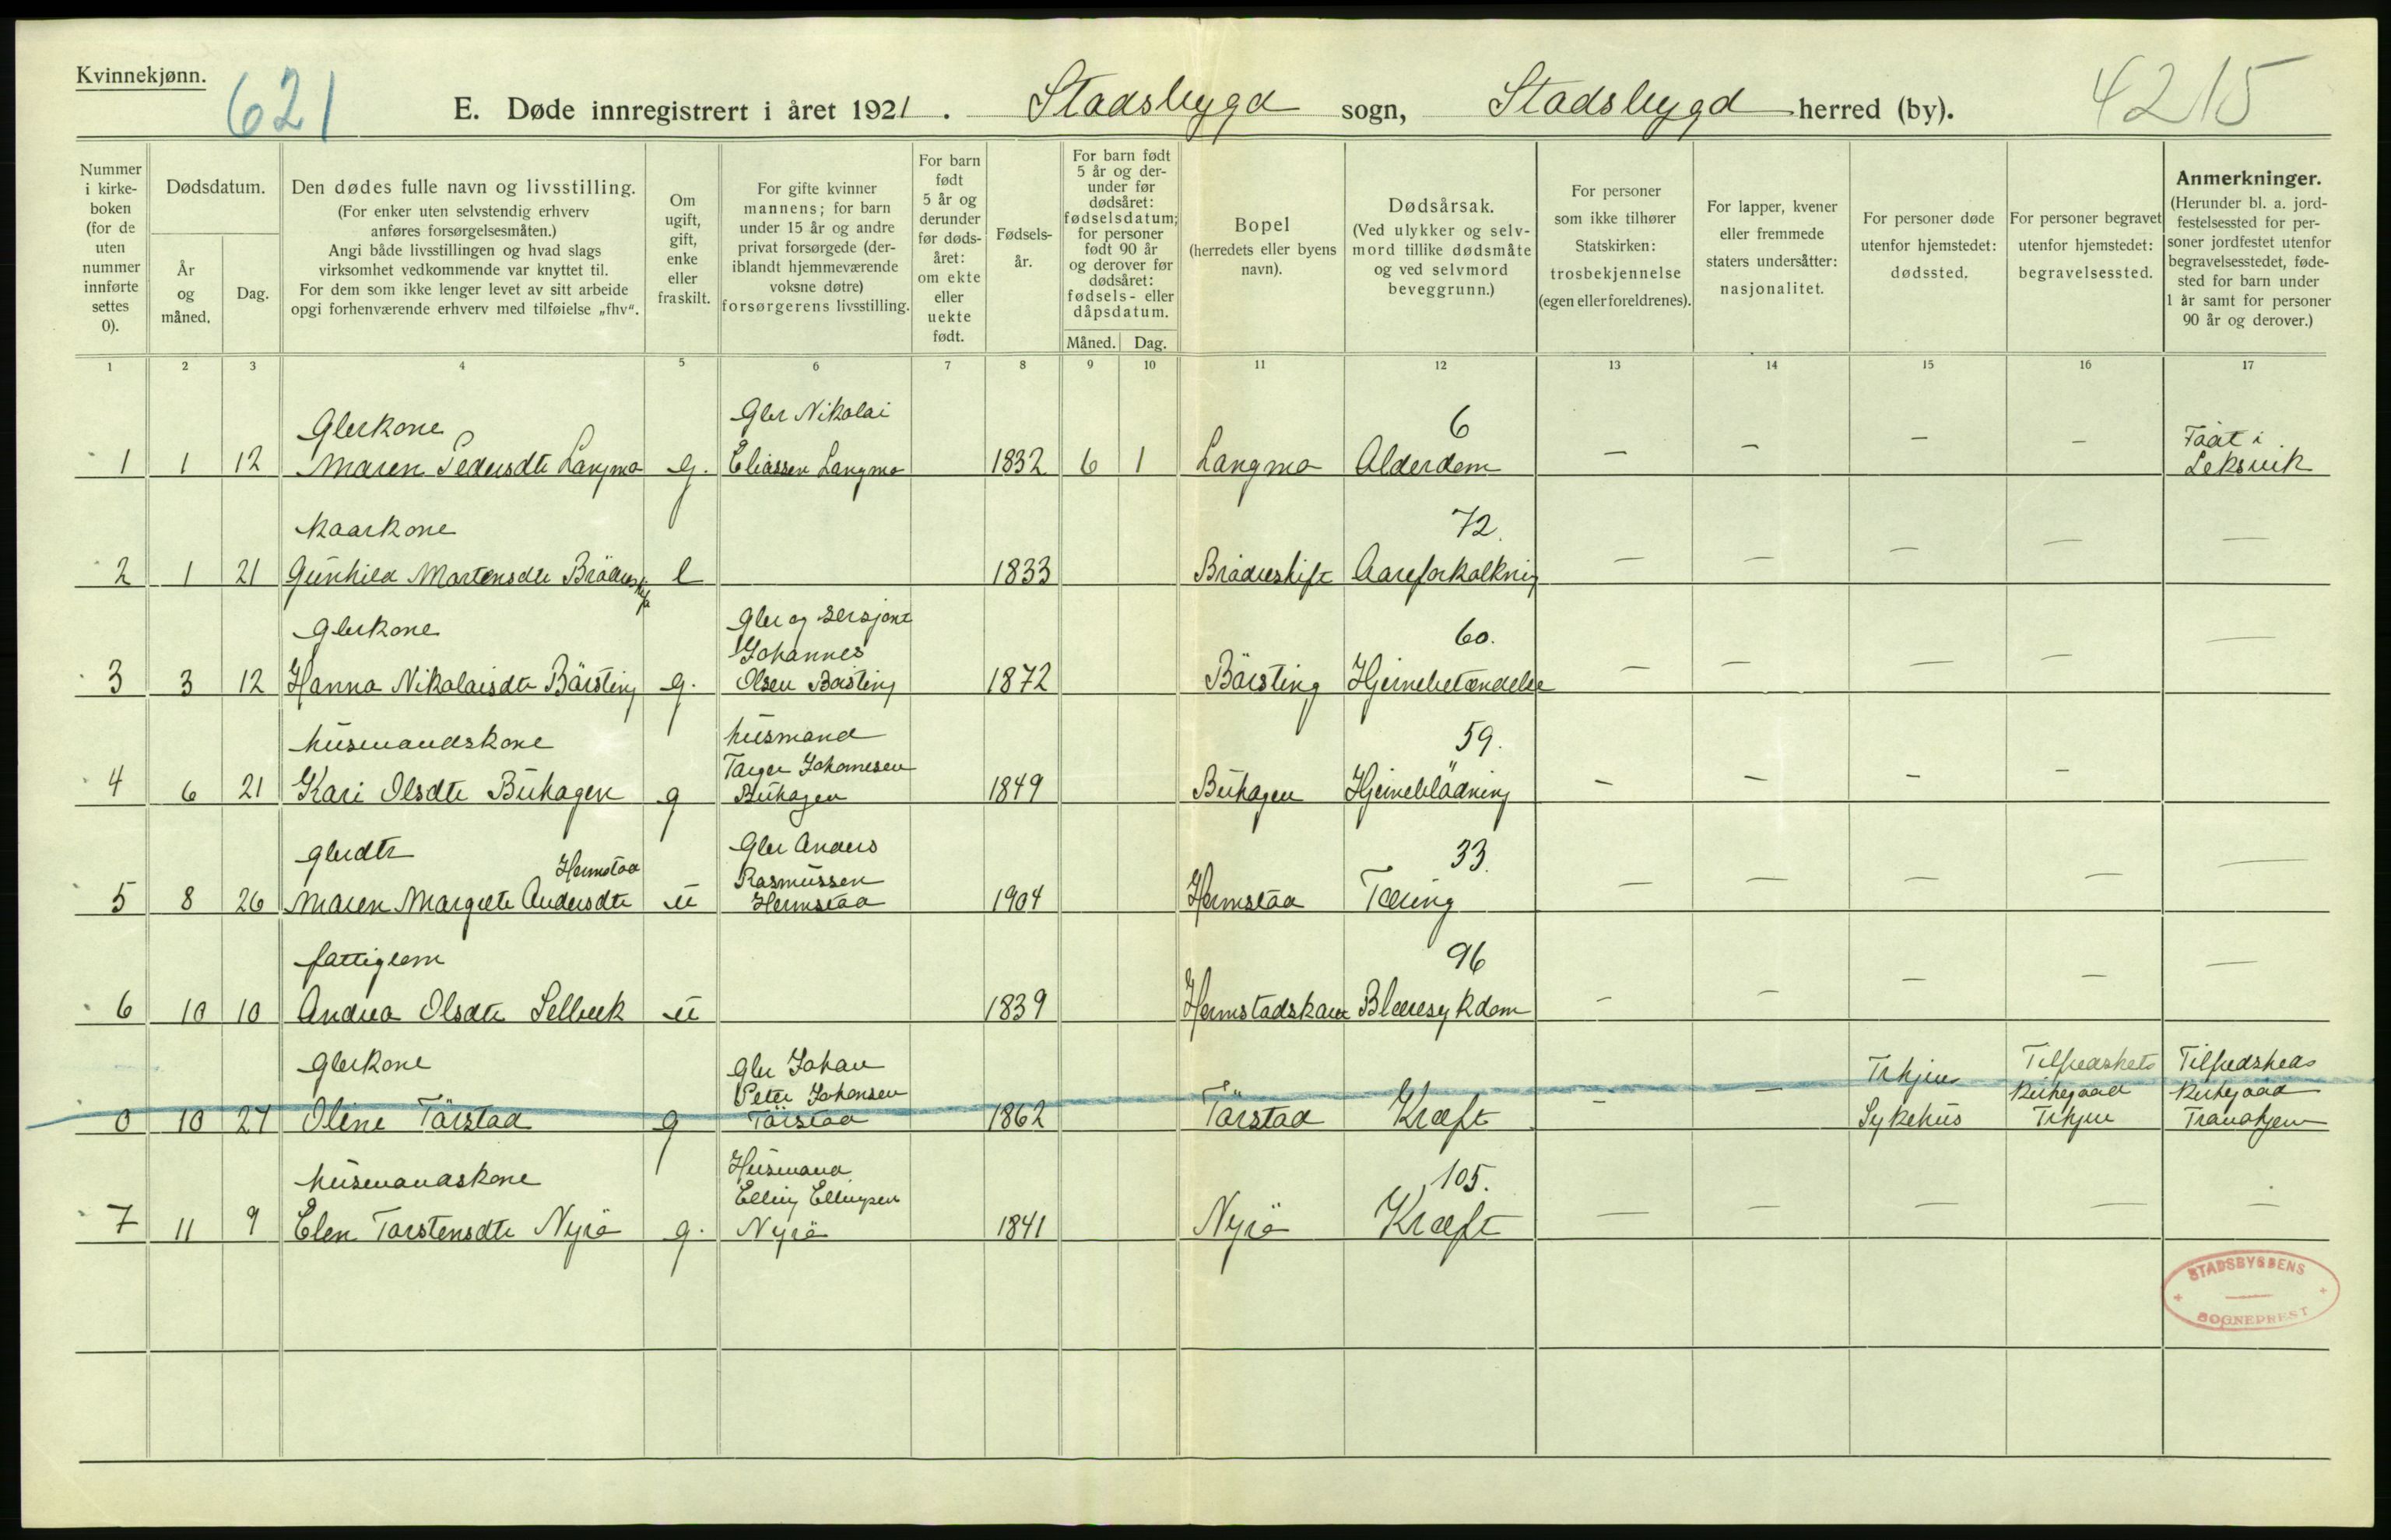 Kvinnekjønn.
621
E. Døde innregistrert i året 1921. Stadsbygd sogn, Stadsbygd herred (by).
4215
Nummer i kirkeboken (for de uten nummer innførte settes 0).
Dødsdatum.
År og måned.
Dag.
Den dødes fulle navn og livsstilling.
(For enker uten selvstendig erhverv
anføres forsørgelsesmåten.)
Angi både livsstillingen og hvad slags
virksomhet vedkommende var knyttet til.
For dem som ikke lenger levet av sitt arbeide
opgi forhenværende erhverv med tilføielse „fhv“.
Om
ugift,
gift,
enke
eller
fraskilt.
For gifte kvinner
mannens; for barn
under 15 år og andre
privat forsørgede (der-
iblandt hjemmeværende
voksne døtre)
forsørgerens livsstilling.
For barn
født
5 år og
derunder
før døds-
året:
om ekte
eller
uekte
født.
Fødsels-
år.
For barn født
5 år og der-
under før
dødsåret:
fødselsdatum;
for personer
født 90 år
og derover før
dødsåret:
fødsels- eller
dåpsdatum.
Måned. Dag.
Bopel
(herredets eller byens
navn).
Dødsårsak.
(Ved ulykker og selv-
mord tillike dødsmåte
og ved selvmord
beveggrunn.)
For personer
som ikke tilhører
Statskirken:
trosbekjennelse
(egen eller foreldrenes).
For lapper, kvener
eller fremmede
staters undersåtter:
nasjonalitet.
For personer døde
utenfor hjemstedet:
dødssted.
For personer begravet
utenfor hjemstedet:
begravelsessted.
Anmerkninger.
(Herunder bl. a. jord-
festelsessted for per-
soner jordfestet utenfor
begravelsesstedet, føde-
sted for barn under
1 år samt for personer
90 år og derover.)
1 2 3 4 5 6 7 8 9 10 11 12 13 14 15 16 17
Glerkone Gler Nikolai 6 Fööt i
1 1 12 Maren Pedersdtr Langmo g. Eliassen Langmo 1832 6 1 Langmo Alderdom — — — — Leksvik
Kaarkone 72.
2 1 21 Gunhild Mortensdtr Bröderskift e 1833 Bröderskift Aareforkalkning — — — — —
Glerkone Gler og sersjant
Johannes 60.
3 3 12 Hanna Nikolaisdtr Börsting g. Olsen Börsting 1872 Börsting Hjernebetændelse — — — — —
husmandskone husmand 59.
Johannesen
4 6 21 Kari Olsdtr Buhagen g Buhagen 1849 Buhagen Hjerneblödning — — — —
glerdtr Gler Anders 33.
Hermstad Rasmussen
5 8 26 Maren Margrete Andersdtr u Hermstad 1904 Hermstad Tæring — — — — —
fattiglem 96
6 10 10 Andrea Olsdtr Selbæk u 1839 Blæresykdom — — — — —
Glerkone Gler Johan Trhjem Tilfredshets Tilfredsheds
Peter Johansen Kirkegaard Kirkegaard
0 10 27 Oline Törstad g Törstad 1862 Törstad Kræft — — Sykehus Trhjem Trondhjem
husmandskone Husmand 105.
Elling Ellingsen
7 11 9 Elen Torstensdtr Nyrö g. Nyrö 1841 Nyrö Kræft — — — — —
STADSBYGDENS
SOGNEPREST